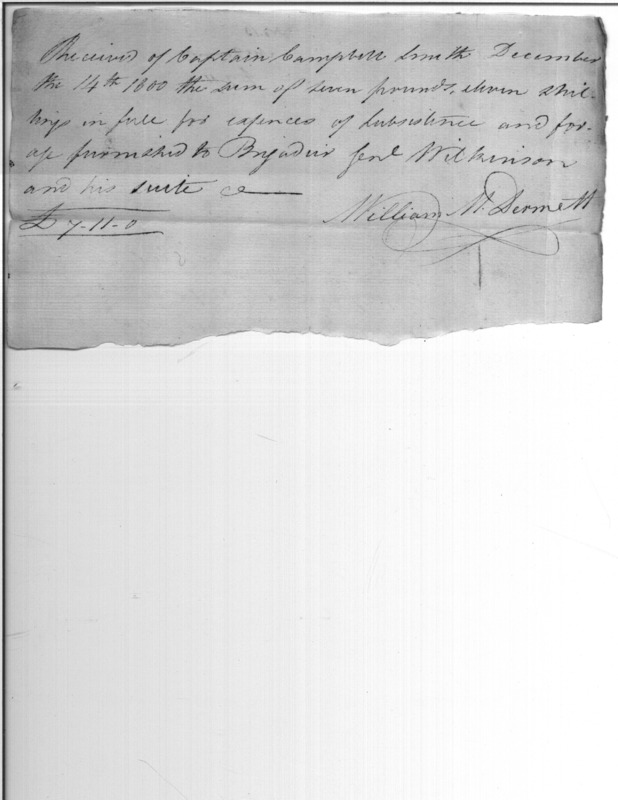 Received of Captain Campbell Smith December
the 14th 1800 the sum of seven pounds, eleven shil-
lings in full for expences of subsistence and for-
age furnished to Brigadier Genl Wilkinson
and his suite
£ 7-11-0
William McDermott